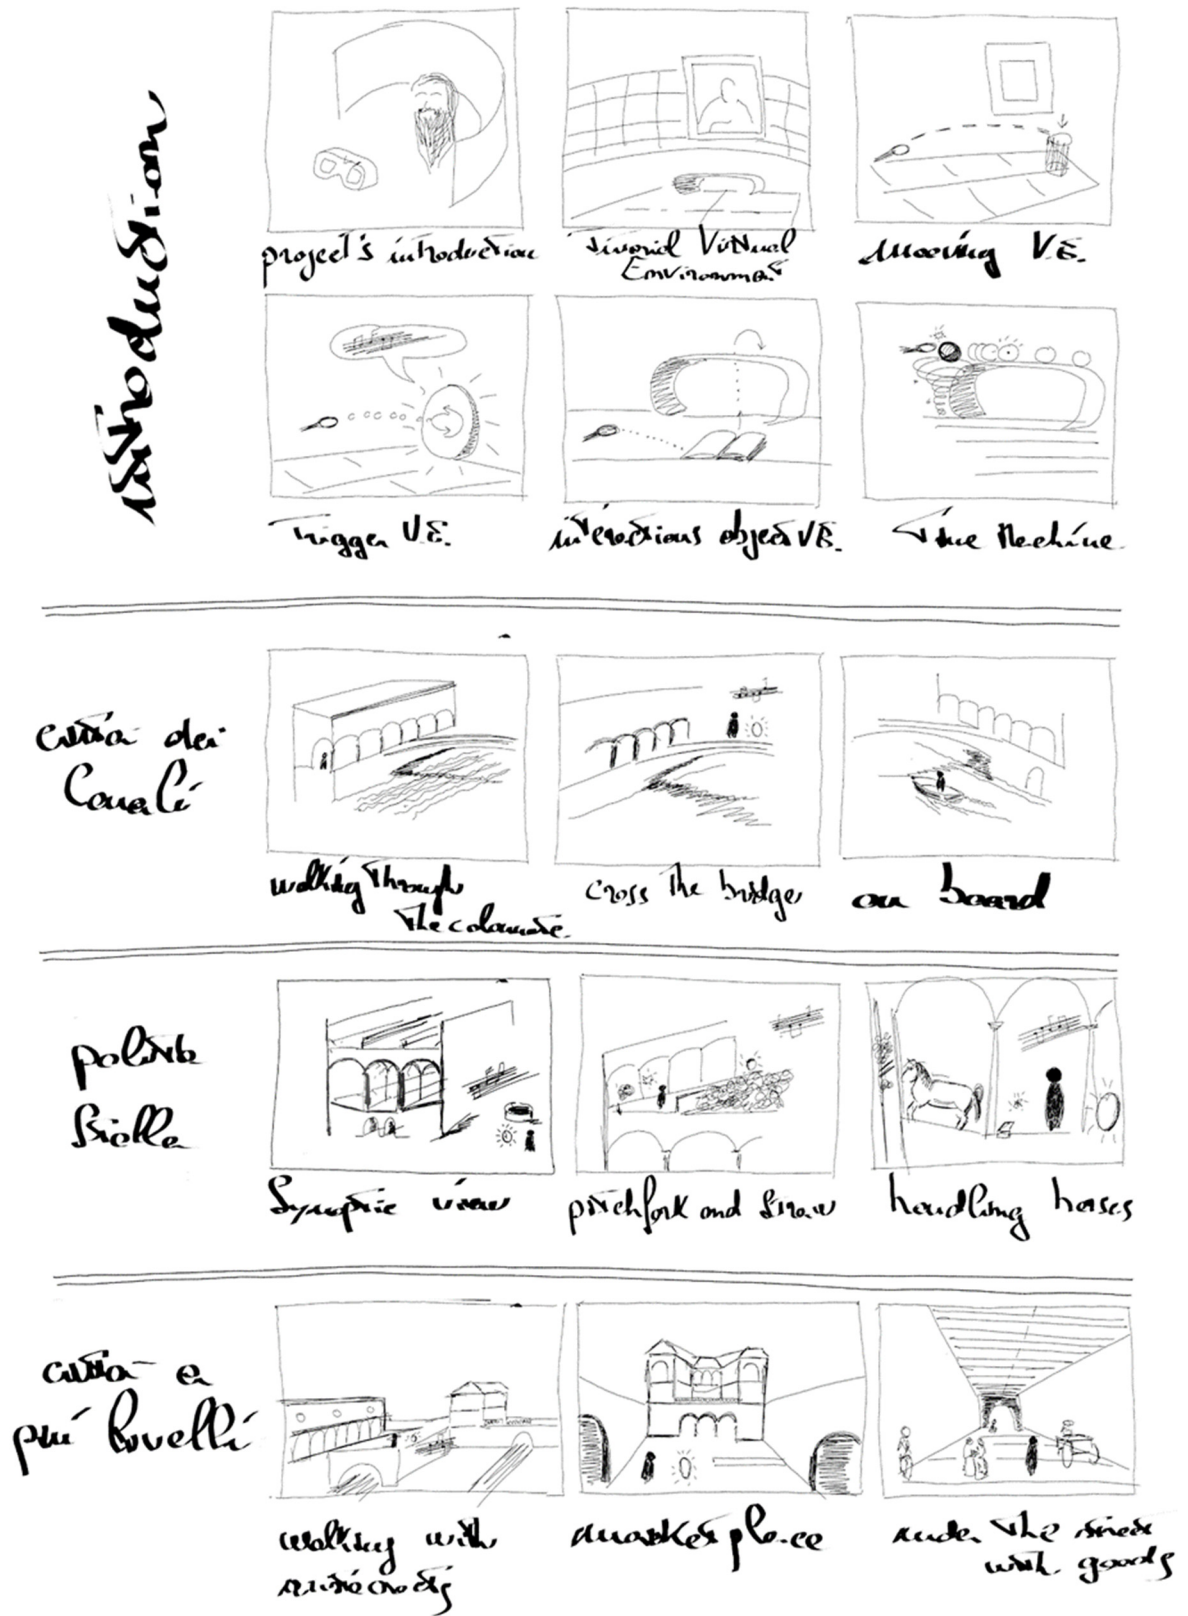 introduction
project's introduction
Tutorial Virtual
Environment
mooving V.E.
Trigger V.E.
interactions object V.E.
Time Machine
città dei
Canali
walking through
the colonnade
cross the bridge
on board
polita
Stalla
Synoptic view
pitchfork and straw
handling horses
città a
più livelli
walking with
aristocrats
marketplace
under the street
with goods